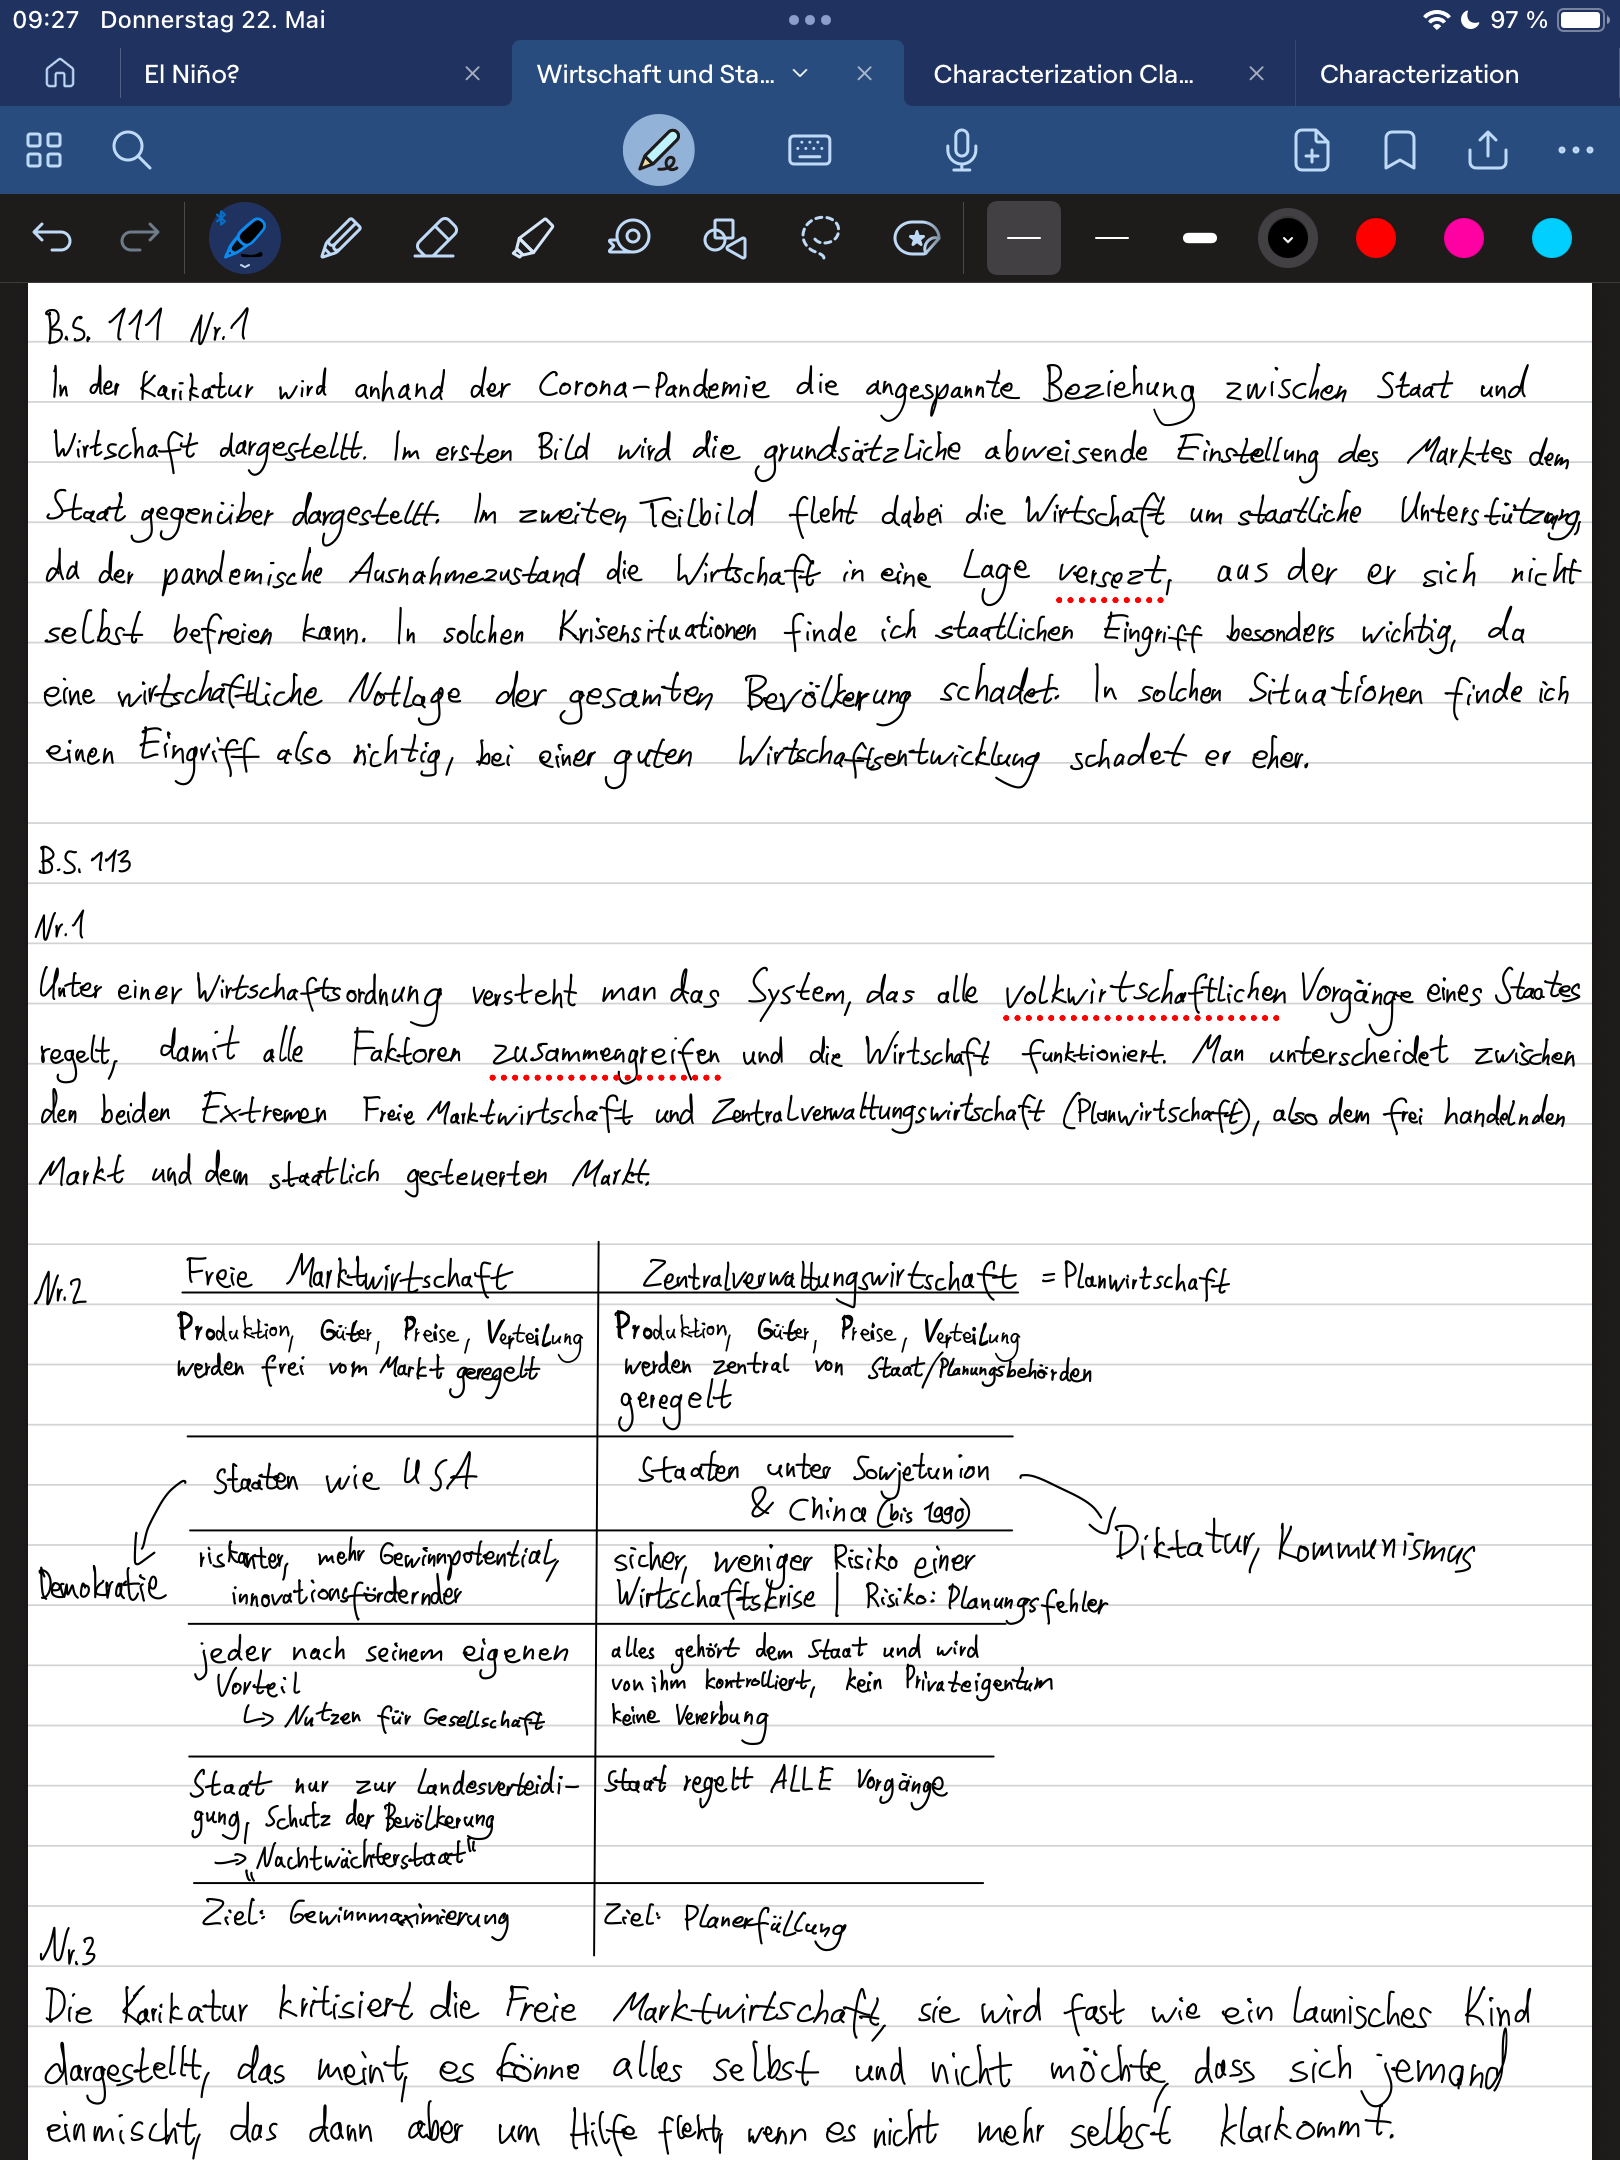 09:27 Donnerstag 22. Mai 97 %
El Niño? Wirtschaft und Sta... Characterization Cla... Characterization
B.S. 111 Nr.1
In der Karikatur wird anhand der Corona-Pandemie die angespannte Beziehung zwischen Staat und
Wirtschaft dargestellt. Im ersten Bild wird die grundsätzliche abweisende Einstellung des Marktes dem
Staat gegenüber dargestellt. Im zweiten Teilbild fleht dabei die Wirtschaft um staatliche Unterstützung,
da der pandemische Ausnahmezustand die Wirtschaft in eine Lage versezt, aus der er sich nicht
selbst befreien kann. In solchen Krisensituationen finde ich staatlichen Eingriff besonders wichtig, da
eine wirtschaftliche Notlage der gesamten Bevölkerung schadet. In solchen Situationen finde ich
einen Eingriff also richtig, bei einer guten Wirtschaftsentwicklung schadet er eher.
B.S. 113
Nr.1
Unter einer Wirtschaftsordnung versteht man das System, das alle volkwirtschaftlichen Vorgänge eines Staates
regelt, damit alle Faktoren zusammengreifen und die Wirtschaft funktioniert. Man unterscheidet zwischen
den beiden Extremen Freie Marktwirtschaft und Zentralverwaltungswirtschaft (Planwirtschaft), also dem frei handelnden
Markt und dem staatlich gesteuerten Markt.
Nr.2 Freie Marktwirtschaft Zentralverwaltungswirtschaft = Planwirtschaft
Produktion, Güter, Preise, Verteilung
werden frei vom Markt geregelt
Produktion, Güter, Preise, Verteilung
werden zentral von Staat/Planungsbehörden
geregelt
Staaten wie USA
Demokratie
Staaten unter Sowjetunion
& China (bis 1990)
Diktatur, Kommunismus
riskanter, mehr Gewinnpotential,
innovationsfördernder
sicher, weniger Risiko einer
Wirtschaftskrise | Risiko: Planungsfehler
jeder nach seinem eigenen
Vorteil
↳ Nutzen für Gesellschaft
alles gehört dem Staat und wird
von ihm kontrolliert, kein Privateigentum
keine Vererbung
Staat nur zur Landesverteidi-
gung, Schutz der Bevölkerung
→ „Nachtwächterstaat"
Staat regelt ALLE Vorgänge
Ziel: Gewinnmaximierung
Ziel: Planerfüllung
Nr.3
Die Karikatur kritisiert die Freie Marktwirtschaft, sie wird fast wie ein launisches Kind
dargestellt, das meint, es könne alles selbst und nicht möchte, dass sich jemand
einmischt, das dann aber um Hilfe fleht, wenn es nicht mehr selbst klarkommt.